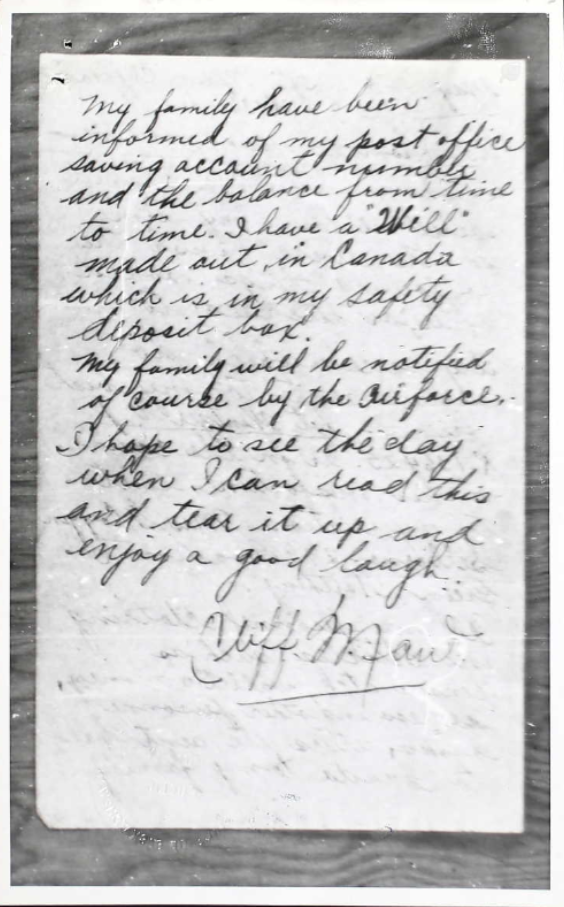 My family have been
informed of my post office
saving account number
and the balance from time
to time. I have a "Will"
made out in Canada
which is in my safety
deposit box.
My family will be notified
of course by the Airforce.
I hope to see the day
when I can read this
and tear it up and
enjoy a good laugh.